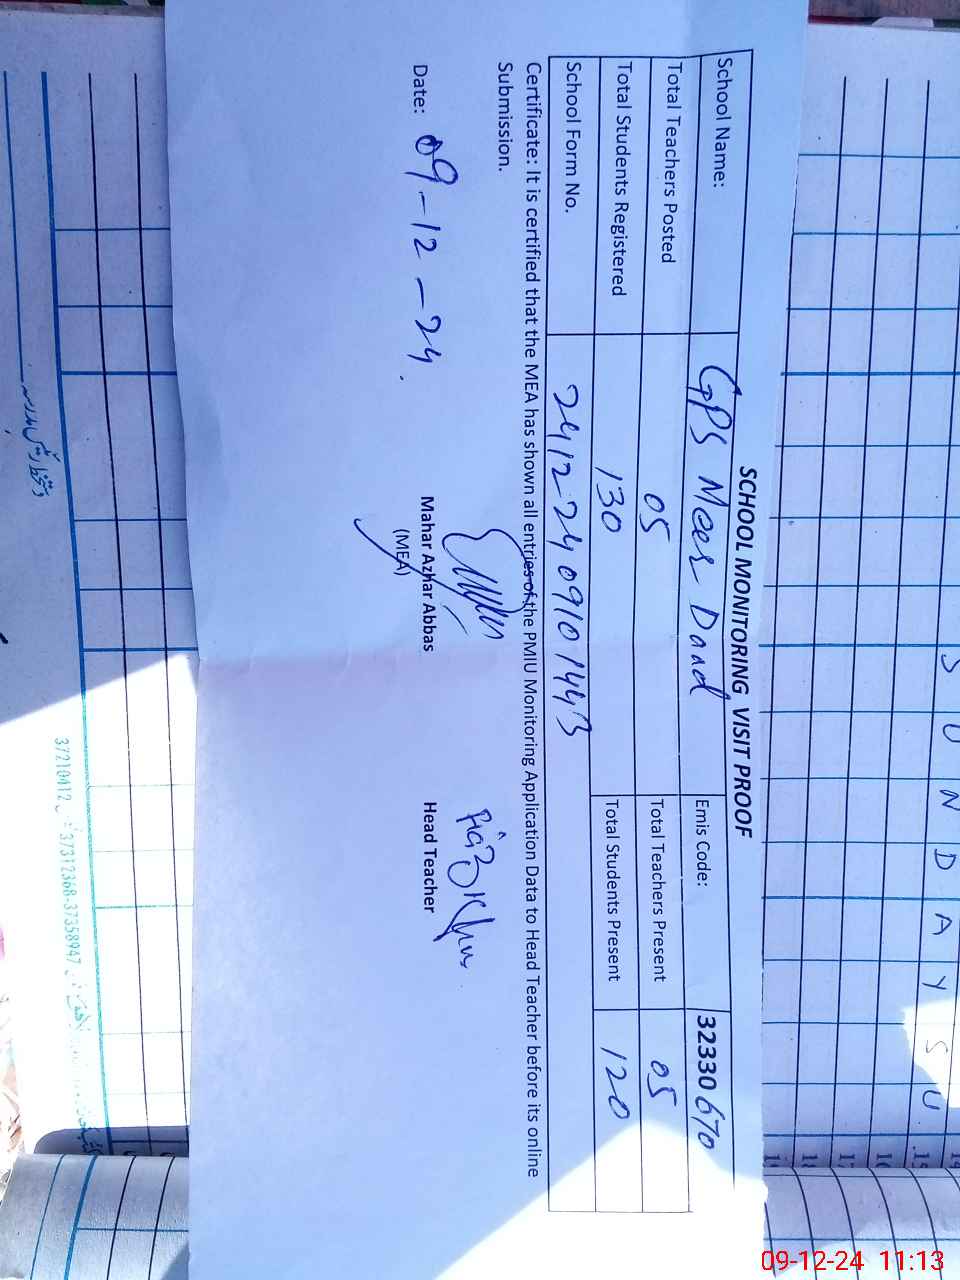 SCHOOL MONITORING VISIT PROOF
School Name: GPS Meer Daad Emis Code: 32330 670
Total Teachers Posted 05 Total Teachers Present 05
Total Students Registered 130 Total Students Present 120
School Form No. 24122409101443
Certificate: It is certified that the MEA has shown all entries of the PMIU Monitoring Application Data to Head Teacher before its online
Submission.
Date: 09-12-24.
Mahar Azhar Abbas
(MEA)
Head Teacher
S U N D A Y S U
15
16
17
18
37210412
37312368-37358947
09-12-24 11:13